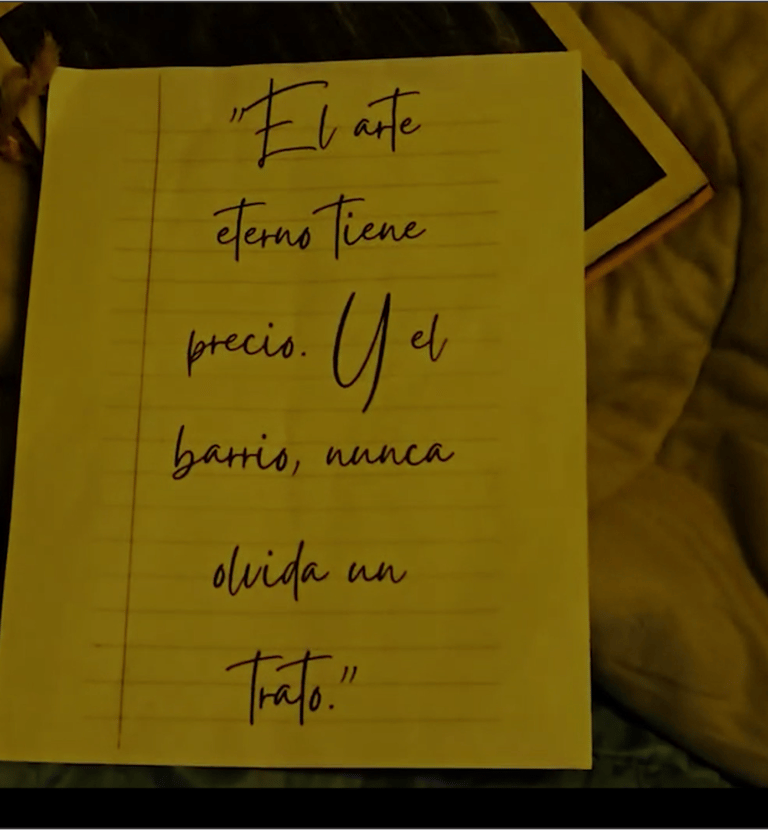 "El arte
eterno tiene
precio. Y el
barrio, nunca
olvida un
trato."